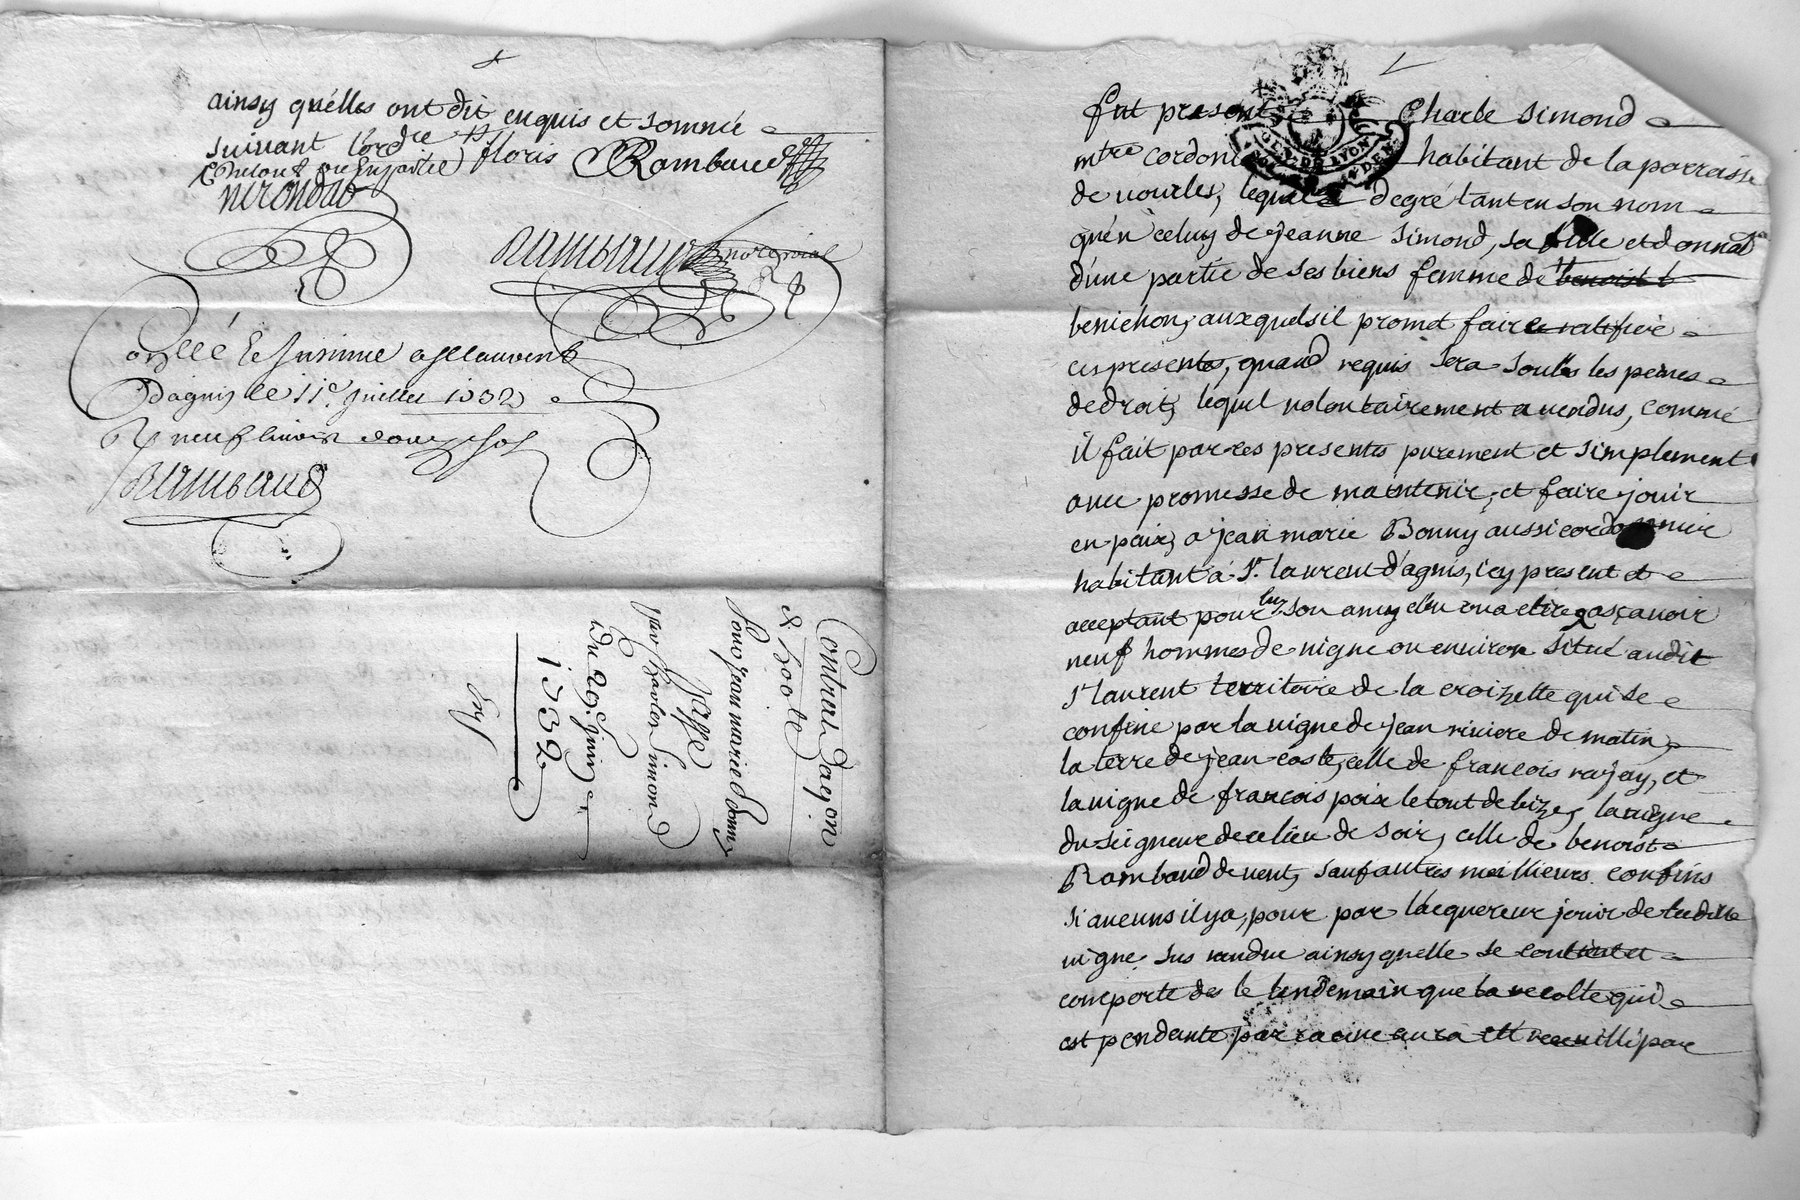 ainsy quelles ont dit enquis et sommé
suivant lordre floris Rambaud
nirondas
Rambaud no.re royial
dagnis le 11e Juillet 1732
neuf livres douze sols
Rambaud
Contrat dacq.on
& 300 lt
pour jean marie bonny
passé
par Charles Simond
du 29e Juin
1732
Exp
fut present Charle Simond
mtre cordoni habitant de la parroisse
de vourles, lequel de gré tant en son nom
quén celuy de jeanne Simond, sa fille et donnat.re
dune partie de ses biens femme de benoist b
benichon, auxquels il promet faire ratifier
ces presentes, quand requis sera soubs les peines
de droit, lequel volontairement a vendus, comme
il fait par ces presentes purement et simplement
avec promesse de maintenir, et faire jouir
en paix, a jean marie Bonny aussi cordonnier
habitant á St. laurent d'agnis, icy present et
acceptant pour luy son amy elu ou a elire, ascavoir
neuf hommes de vigne ou environ situé audit
St laurent territoire de la croizette qui se
confine par la vigne de jean riviere de matin,
la terre de jean coste, celle de francois rajay, et
la vigne de francois poix le tout de bize, la vigne
du seigneur de ce lieu de soir, celle de benoist
Rambaud de vent, sauf autres meillieurs confins
si aucuns il y a, pour par lácquereur jouir de ladite
vigne sus vendue ainsy quelle se contient et
comporte des le lendemain que la recolte qui
est pendante par racine aura eté recuillie par